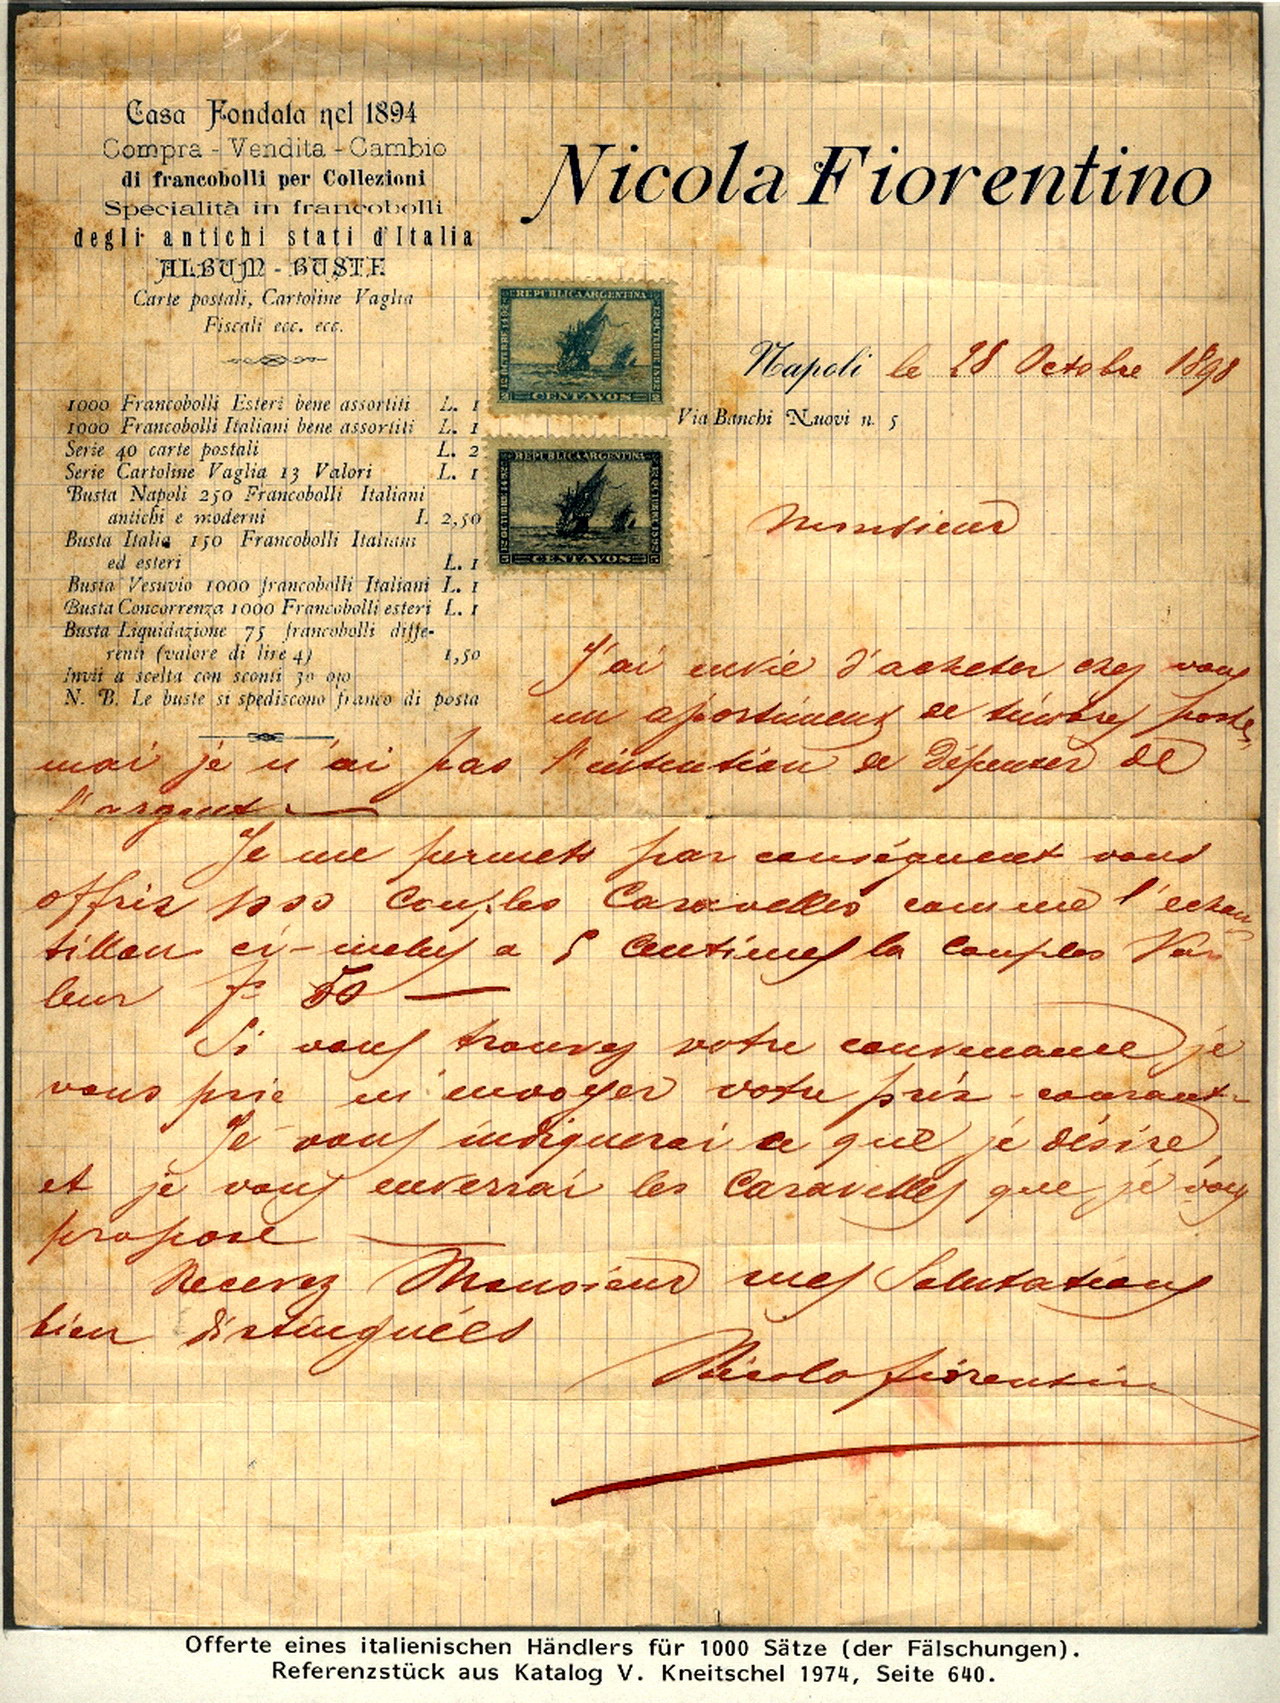 Casa Fondata nel 1894
Compra - Vendita - Cambio
di francobolli per Collezioni
Specialità in francobolli
degli antichi stati d'Italia
ALBUM - BUSTE
Carte postali, Cartoline Vaglia
Fiscali ecc. ecc.
1000 Francobolli Esteri bene assortiti L. 1
1000 Francobolli Italiani bene assortiti L. 1
Serie 40 carte postali L. 2
Serie Cartoline Vaglia 13 Valori L. 1
Busta Napoli 250 Francobolli Italiani
antichi e moderni L. 2,50
Busta Italia 150 Francobolli Italiani
ed esteri L. 1
Busta Vesuvio 1000 francobolli Italiani L. 1
Busta Concorrenza 1000 Francobolli esteri L. 1
Busta Liquidazione 75 francobolli diffe-
renti (valore di lire 4) 1,50
Invii a scelta con sconti 30 0/0
N. B. Le buste si spediscono franco di posta
Nicola Fiorentino
REPUBLICA ARGENTINA
12 OCTUBRE 1492
12 OCTUBRE 1892
2 CENTAVOS 2
REPUBLICA ARGENTINA
12 OCTUBRE 1492
12 OCTUBRE 1892
5 CENTAVOS 5
Napoli le 28 Octobre 1898
Via Banchi Nuovi n. 5
Monsieur
J'ai envie d'acheter chez vous
un de timbres poste,
mai je n'ai pas l'intention de dépenser de
l'argent
Je me permets par conséquent vous
offrir 1000 Couples Caravelles comme l'echan
tillon ci-inclus a 5 Centimes la Couples Va
leur Fr 50
Si vous trouvez votre convenance je
vous prie m'envoyer votre prix-courant-
Je vous indiquerai ce que je désire,
et je vous enverrai les Caravelles que je vous
propose
Recevez Monsieur mes Salutations
bien distinguées
Nicola Fiorentino
Offerte eines italienischen Händlers für 1000 Sätze (der Fälschungen).
Referenzstück aus Katalog V. Kneitschel 1974, Seite 640.